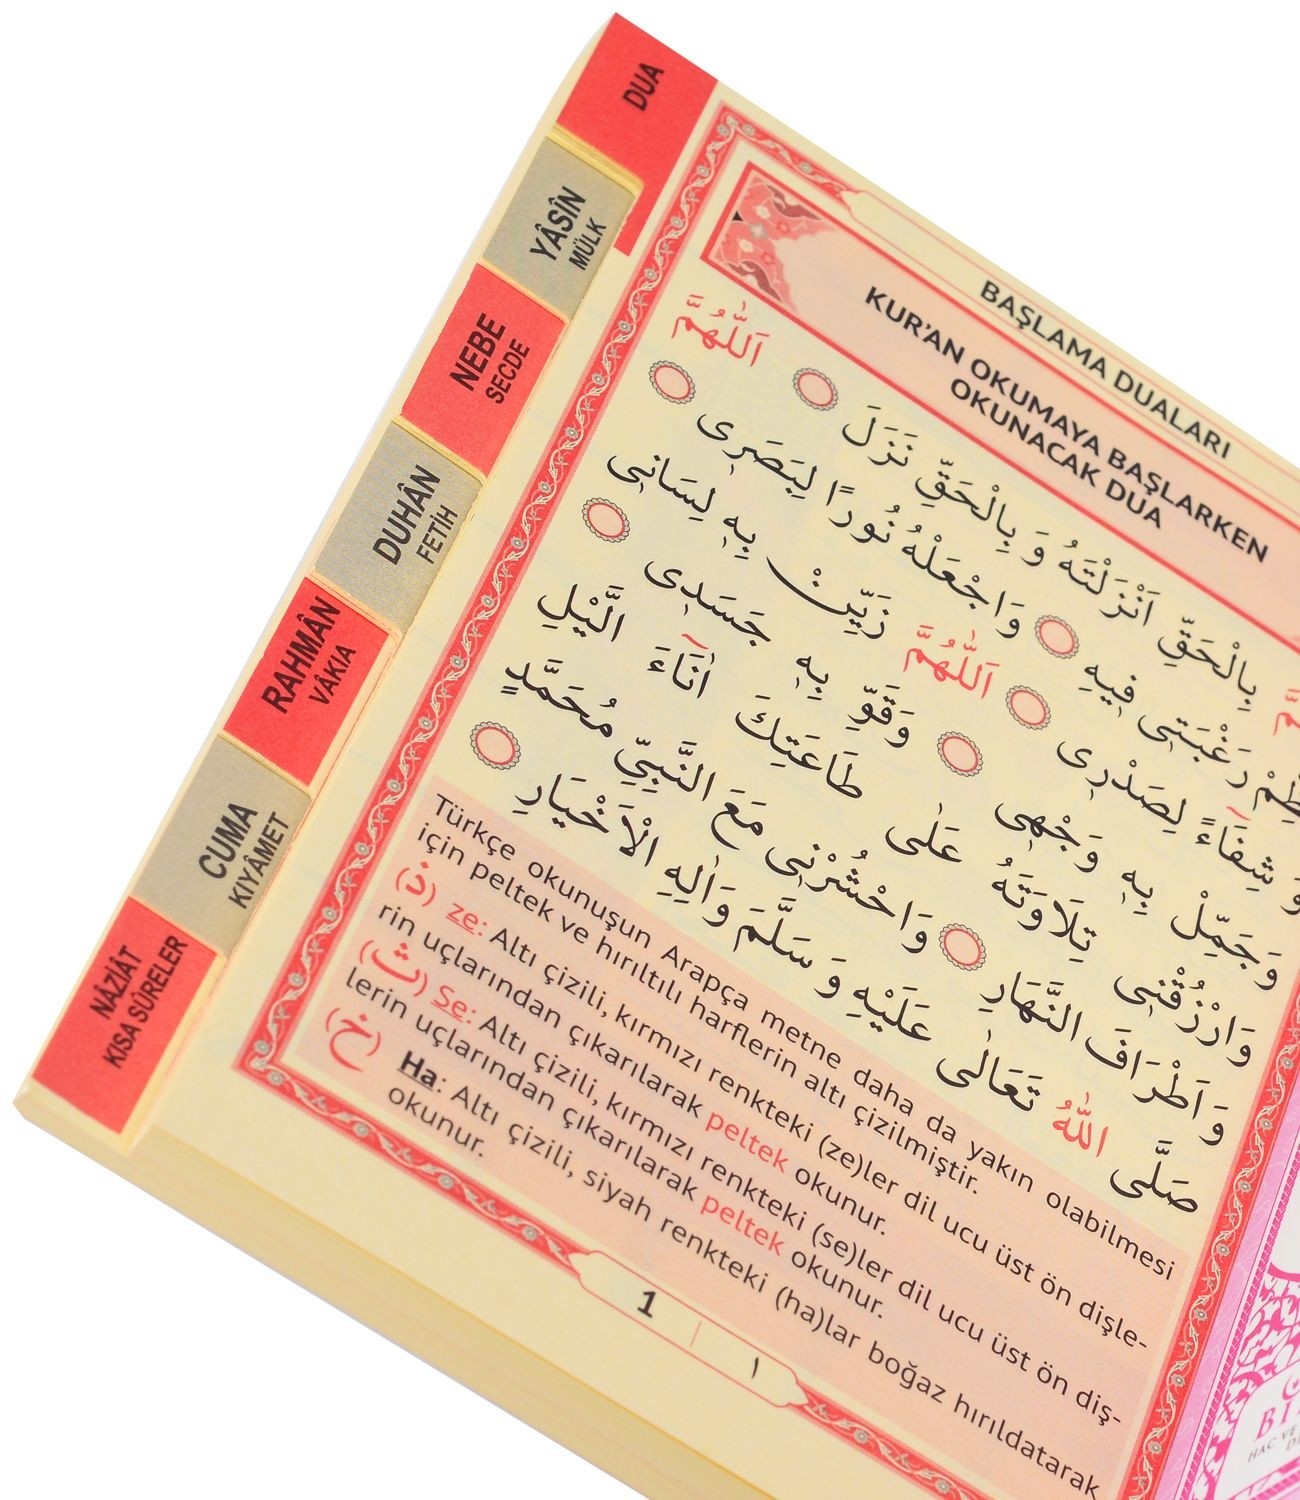 DUA
YÂSÎN
MÜLK
NEBE
SECDE
DUHÂN
FETİH
RAHMÂN
VÂKIA
CUMA
KIYÂMET
NÂZİÂT
KISA SÛRELER
BAŞLAMA DUALARI
KUR'AN OKUMAYA BAŞLARKEN
OKUNACAK DUA
بِالْحَقِّ اَنْزَلْتَهُ وَ بِالْحَقِّ نَزَلَ اَللّٰهُمَّ
رَغْبَتٖى فٖيهِ وَاجْعَلْهُ نُورًا لِبَصَرٖى
وَ شِفَٓاءً لِصَدْرٖى اَللّٰهُمَّ زَيِّنْ بِهٖ لِسَانٖى
وَجَمِّلْ بِهٖ وَجْهٖى وَقَوِّ بِهٖ جَسَدٖى
وَارْزُقْنٖى تِلَاوَتَهُ عَلٰى طَاعَتِكَ اٰنَٓاءَ الَّيْلِ
وَاَطْرَافَ النَّهَارِ وَاحْشُرْنٖى مَعَ النَّبِيِّ مُحَمَّدٍ
صَلَّى اللّٰهُ تَعَالٰى عَلَيْهِ وَ سَلَّمَ وَاٰلِهِ الْاَخْيَارِ
Türkçe okunuşun Arapça metne daha da yakın olabilmesi
için peltek ve hırıltılı harflerin altı çizilmiştir.
(ذ) ze: Altı çizili, kırmızı renkteki (ze)ler dil ucu üst ön dişle-
rin uçlarından çıkarılarak peltek okunur.
(ث) Se: Altı çizili, kırmızı renkteki (se)ler dil ucu üst ön diş-
lerin uçlarından çıkarılarak peltek okunur.
(خ) Ha: Altı çizili, siyah renkteki (ha)lar boğaz hırıldatarak
okunur.
1 ١